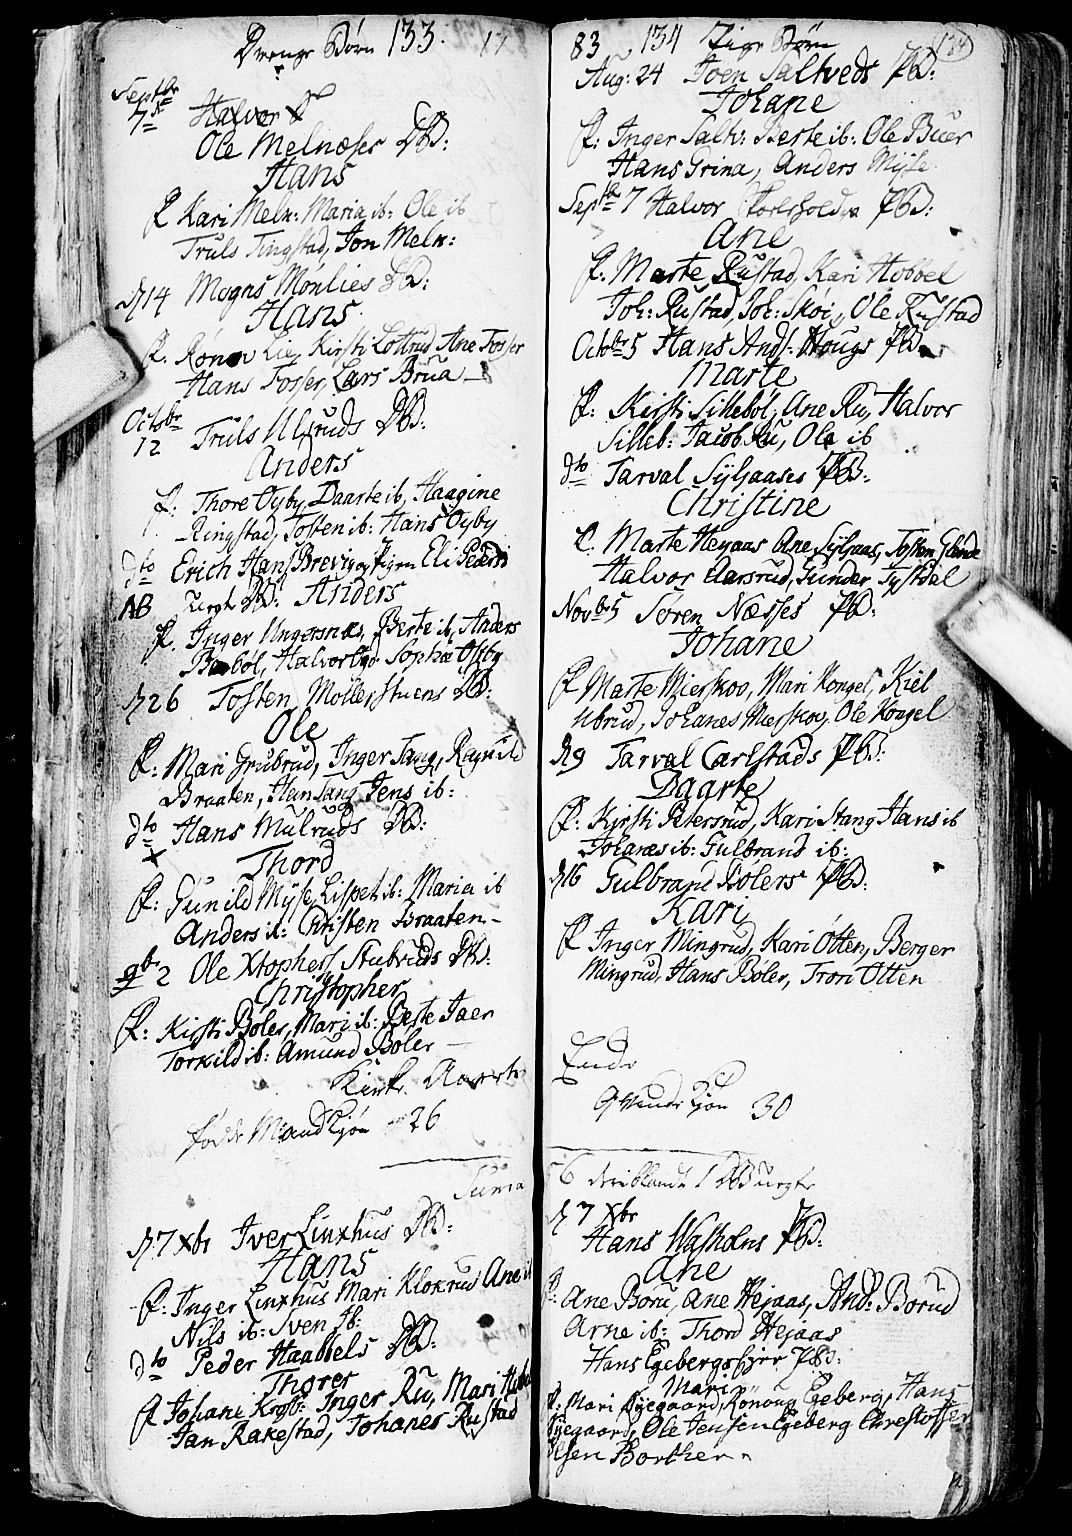 Drenge Børn 133. 17
Septbr
7de Halvor
Ole Melnæses DB:
Hans
f. Kari Meln: Maria ib: Ole ib
Truls Tingstad, Jon Meln:
d. 14 Mogns Mønlies DB:
Hans
f: Rønov Lie, Kirsti Lottrud, Ane Fosser
Hans Fosser, Lars Brua
Octobr
12 Truls Ulsruds DB:
Anders
f: Thore Øyby, Daarte ib, Haagine
Ringstad, Tosten ib: Hans Øyby
dto Erich Hans Brevig og Pigen Eli Peders
NB Uegte DB: Anders
f. Inger Ungersnæs, Berte ib, Anders
Bøl, Halvor Sophie Osby
d. 26 Tosten Møllerstuens DB:
Ole
f: Mari Grubrud, Inger Tang, Ragnild
Braaten, Hans Tang Jens ib:
dto Hans Mulruds DB:
x Thord
f: Gunild Myse, Lispet ib: Maria ib
Anders ib: Christen Braaten
9br 2 Ole Xtophers. Stubruds DB:
Christopher
f: Kirsti Bøler, Mari ib: Berte Jaer
Torkild ib: Amund Bøler
Kirke Aaret
fødde Mandkjøn 26
Suma
d. 7 Xbr Iver Linxhus DB:
Hans
f: Inger Linxhus Mari Klokrud Ane ib
Nils ib: Sven ib:
dto Peder Haabbels DB:
Thorer
f Johane Krogb: Inger Ru, Mari
Jan Rakestad, Johanes Rustad
83 134 Pige Børn 134
Aug: 24 Joen Saltveds PB:
Johane
f: Inger Saltv: Berte ib: Ole Buer
Hans Grina, Anders Myse
Septbr 7 Halvor PB:
Ane
f. Marte Rustad, Kari Hobbel
Joh: Rustad, Joh: Skoi, Ole Rustad
Octobr 5 Hans Ands. Hougs PB
Marte
f: Kirsti Sillebøl, Ane Ru, Halvor
Silleb: Jacob Ru, Ole ib
dto Tarval Syljaases PB:
Christine
f. Marte Heyaas Ane Syljaas, Tosten
Halvor Aarsrud, Gunder Tystdal
Novbr 5 Søren Næsses PB:
Johane
f Marte Mierskov, Mari Kongel, Kiel
Ubrud, Johanes Mierskov, Ole Kongel
d. 9 Tarval Carlstads PB:
Daarte
f: Kirsti Petersrud, Kari Stang Hans ib
Johanes ib: Gulbrand ib:
d. 16 Gulbrand Bølers PB:
Kari
f Inger Mingrud, Kari Otten, Berger
Mingrud, Hans Bøler, Tron Otten
Ende
Qvinde Kjøn 30
56 deriblandt 1 DB uegte
d. 7 Xbr
Hans Washolms PB:
Ane
f: Ane Boru, Ane Hejaas, And: Borud
Arne ib: Thord Hejaas
Hans Egebergs PB:
Mari
f: Mari Ryegaard, Rønoug Egeberg, Hans
Ryegaard, Ole Jensen Egeberg Chrestoffer
Olsen Borther